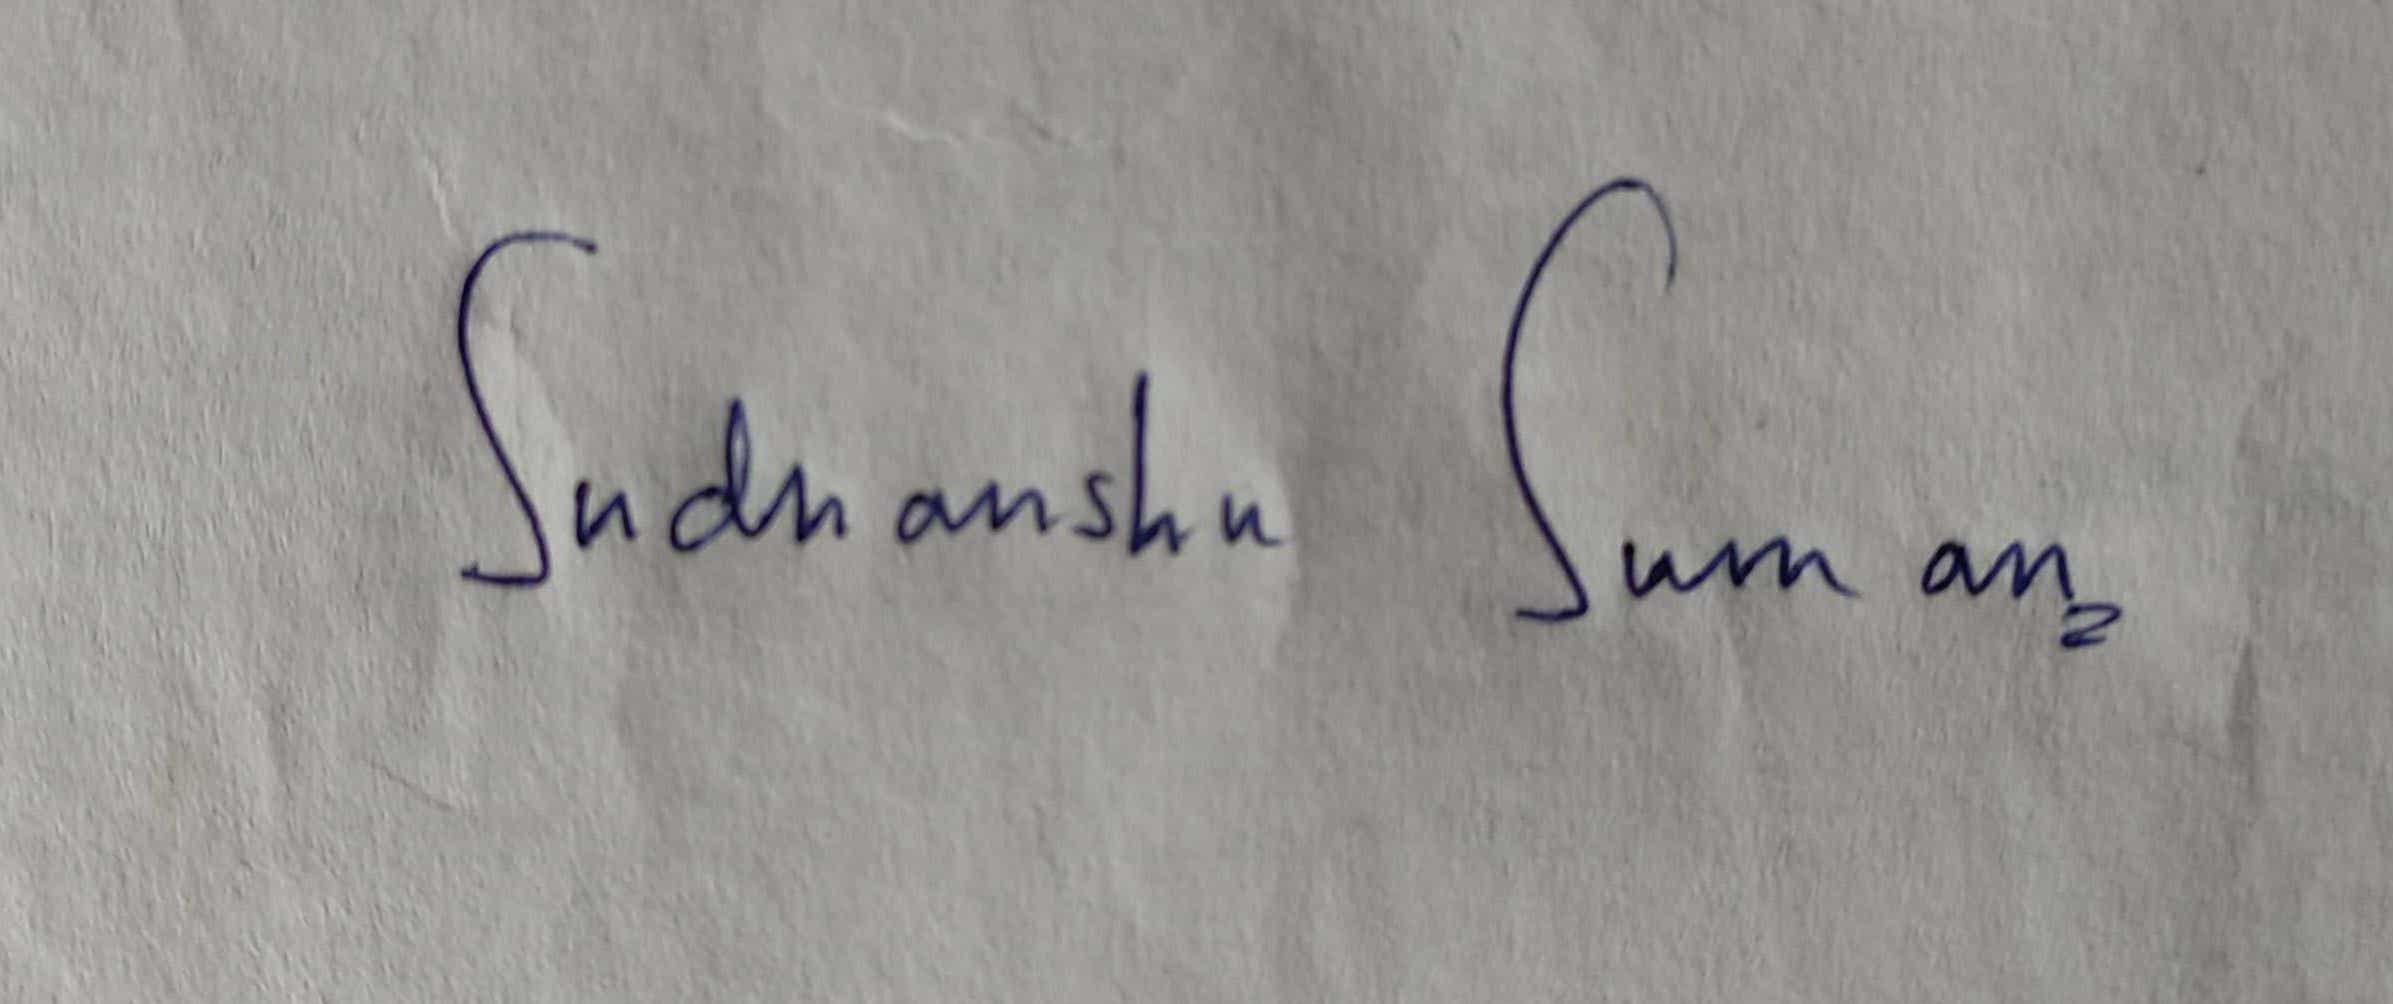 Sudhanshu Suman